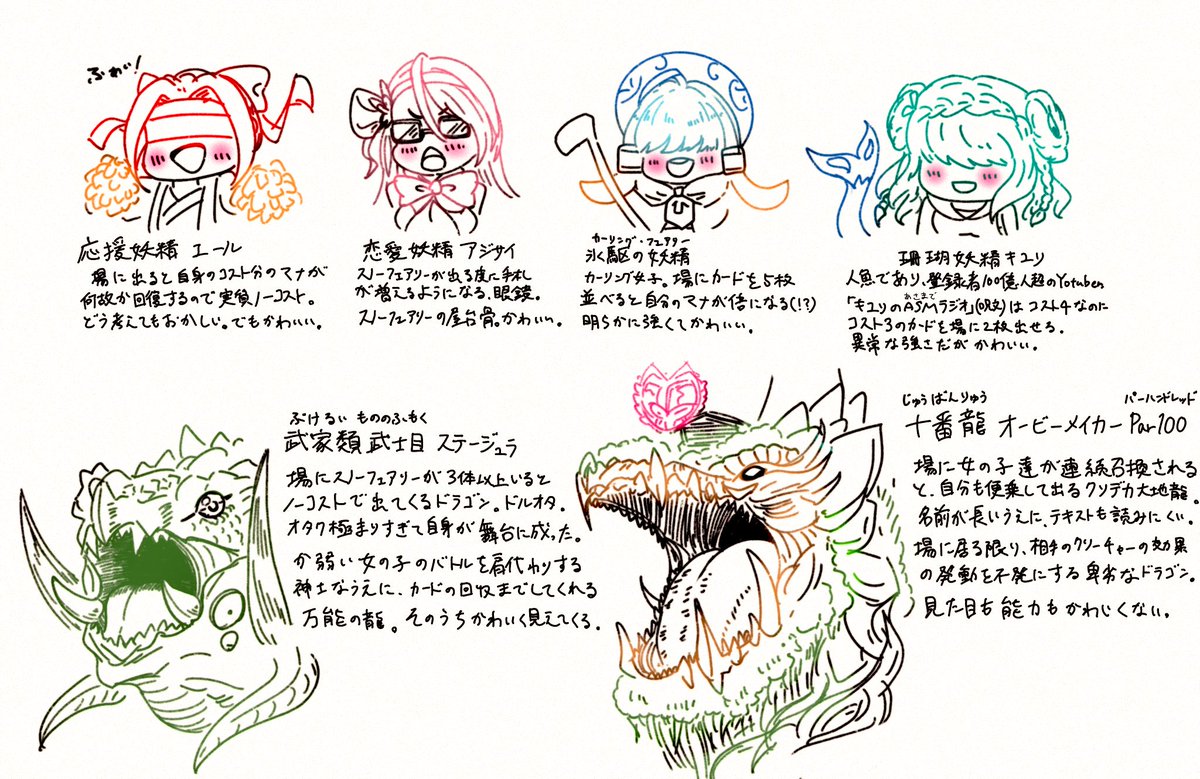 ふれい!
応援妖精 エール
場に出ると自身のコスト分のマナが
何故か回復するので実質ノーコスト。
どう考えてもおかしい。でもかわいい。
恋愛妖精 アジサイ
スノーフェアリーが出る度に手札
が増えるようになる、眼鏡。
スノーフェアリーの屋台骨。かわいい。
カーリング・フェアリー
氷駆の妖精
カーリング女子。場にカードを5枚
並べると自分のマナが倍になる(!?)
明らかに強くてかわいい。
珊瑚妖精キユリ
人魚であり、登録者100億人超のYotuber
あさまで
「キユリのASMラジオ」(呪文)はコスト4なのに
コスト3のカードを場に2枚出せる。
異常な強さだが かわいい。
ぶけるい もののふもく
武家類 武士目 ステージュラ
場にスノーフェアリーが3体以上いると
ノーコストで出てくるドラゴン。ドルオタ。
オタク極まりすぎて自身が舞台に成った。
か弱い女の子のバトルを肩代わりする
紳士なうえに、カードの回収までしてくれる
万能の龍。そのうちかわいく見えてくる.
じゅうばんりゅう
パーハンドレッド
十番龍 オービーメイカー Par100
場に女の子達が連続召換される
と、自分も便乗して出るクソデカ大地龍。
名前が長いうえに、テキストも読みにくい。
場に居る限り、相手のクリーチャーの効果
の発動を不発にする卑劣なドラゴン。
見た目も能力もかわいくない。